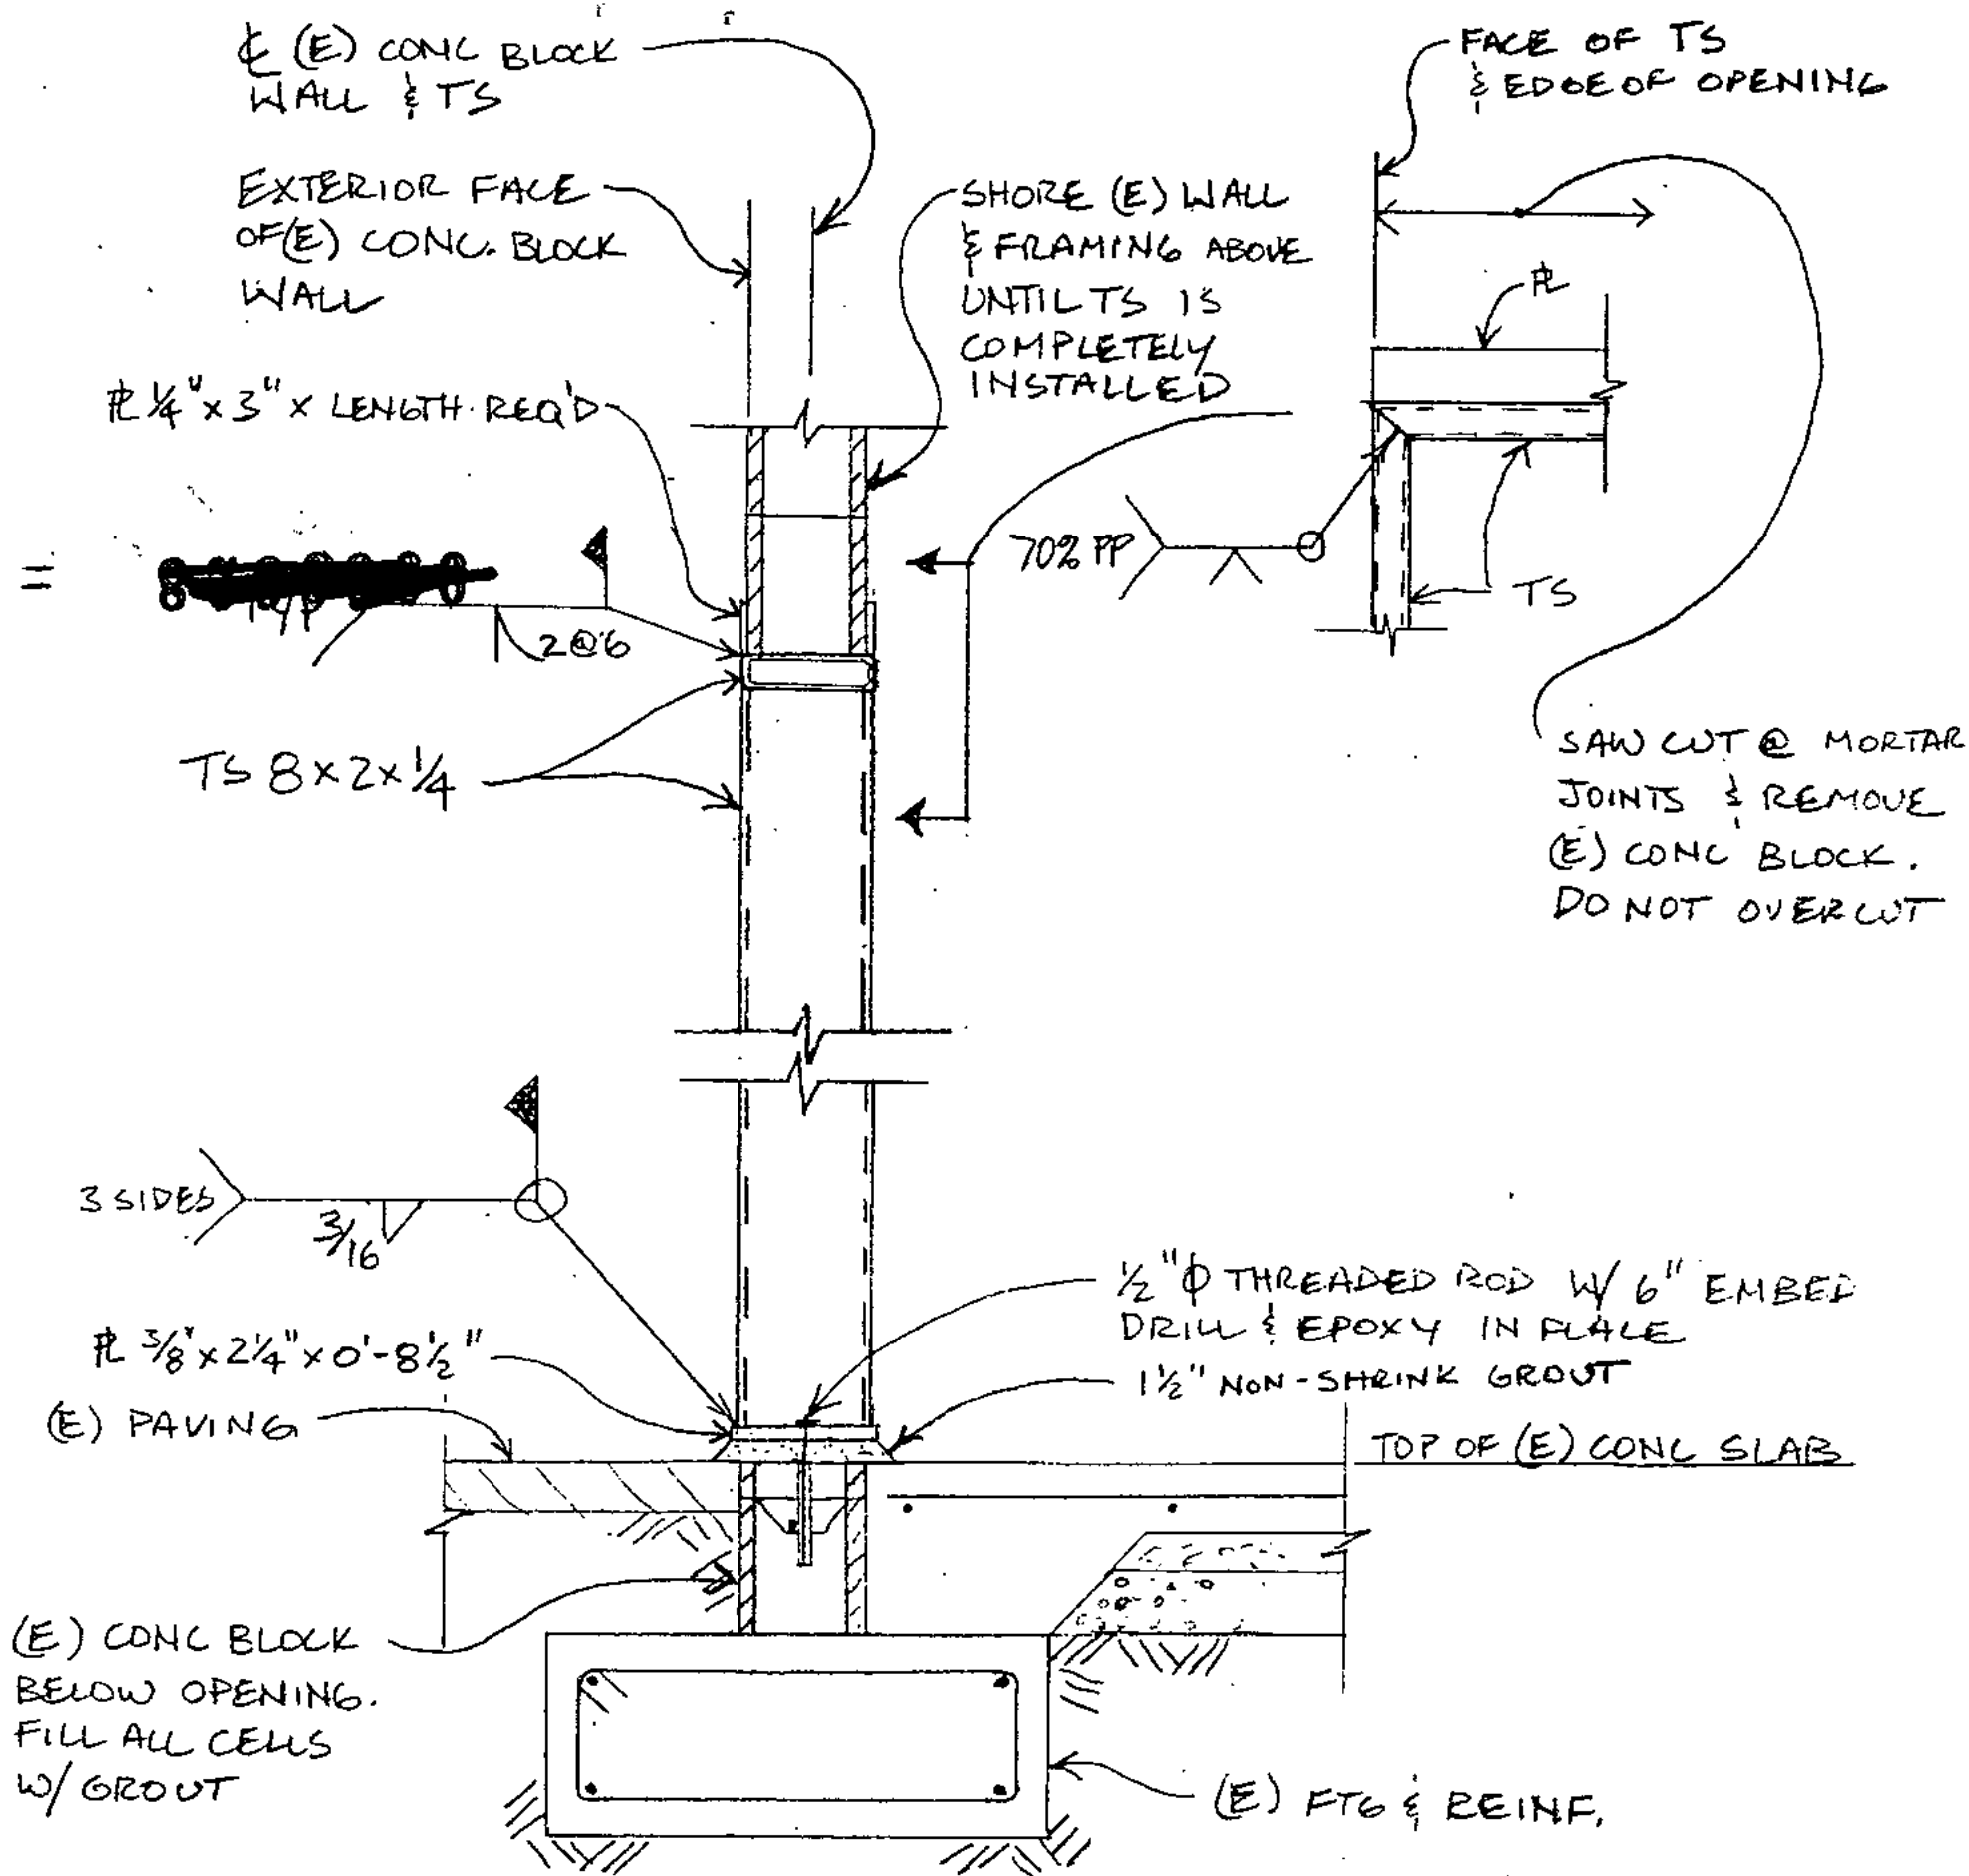 ℄ (E) CONC BLOCK
WALL & TS
EXTERIOR FACE
OF (E) CONC. BLOCK
WALL
SHORE (E) WALL
& FRAMING ABOVE
UNTIL TS IS
COMPLETELY
INSTALLED
FACE OF TS
& EDGE OF OPENING
PL
PL 1/4" x 3" x LENGTH REQ'D
=
TYP
2@6
70% PP
TS
TS 8x2x1/4
SAW CUT @ MORTAR
JOINTS & REMOVE
(E) CONC BLOCK.
DO NOT OVERCUT
3 SIDES
3/16
1/2" φ THREADED ROD W/ 6" EMBED
DRILL & EPOXY IN PLACE
PL 3/8" x 2 1/4" x 0'-8 1/2"
1 1/2" NON-SHRINK GROUT
(E) PAVING
TOP OF (E) CONC SLAB
(E) CONC BLOCK
BELOW OPENING.
FILL ALL CELLS
W/ GROUT
(E) FTG & REINF.